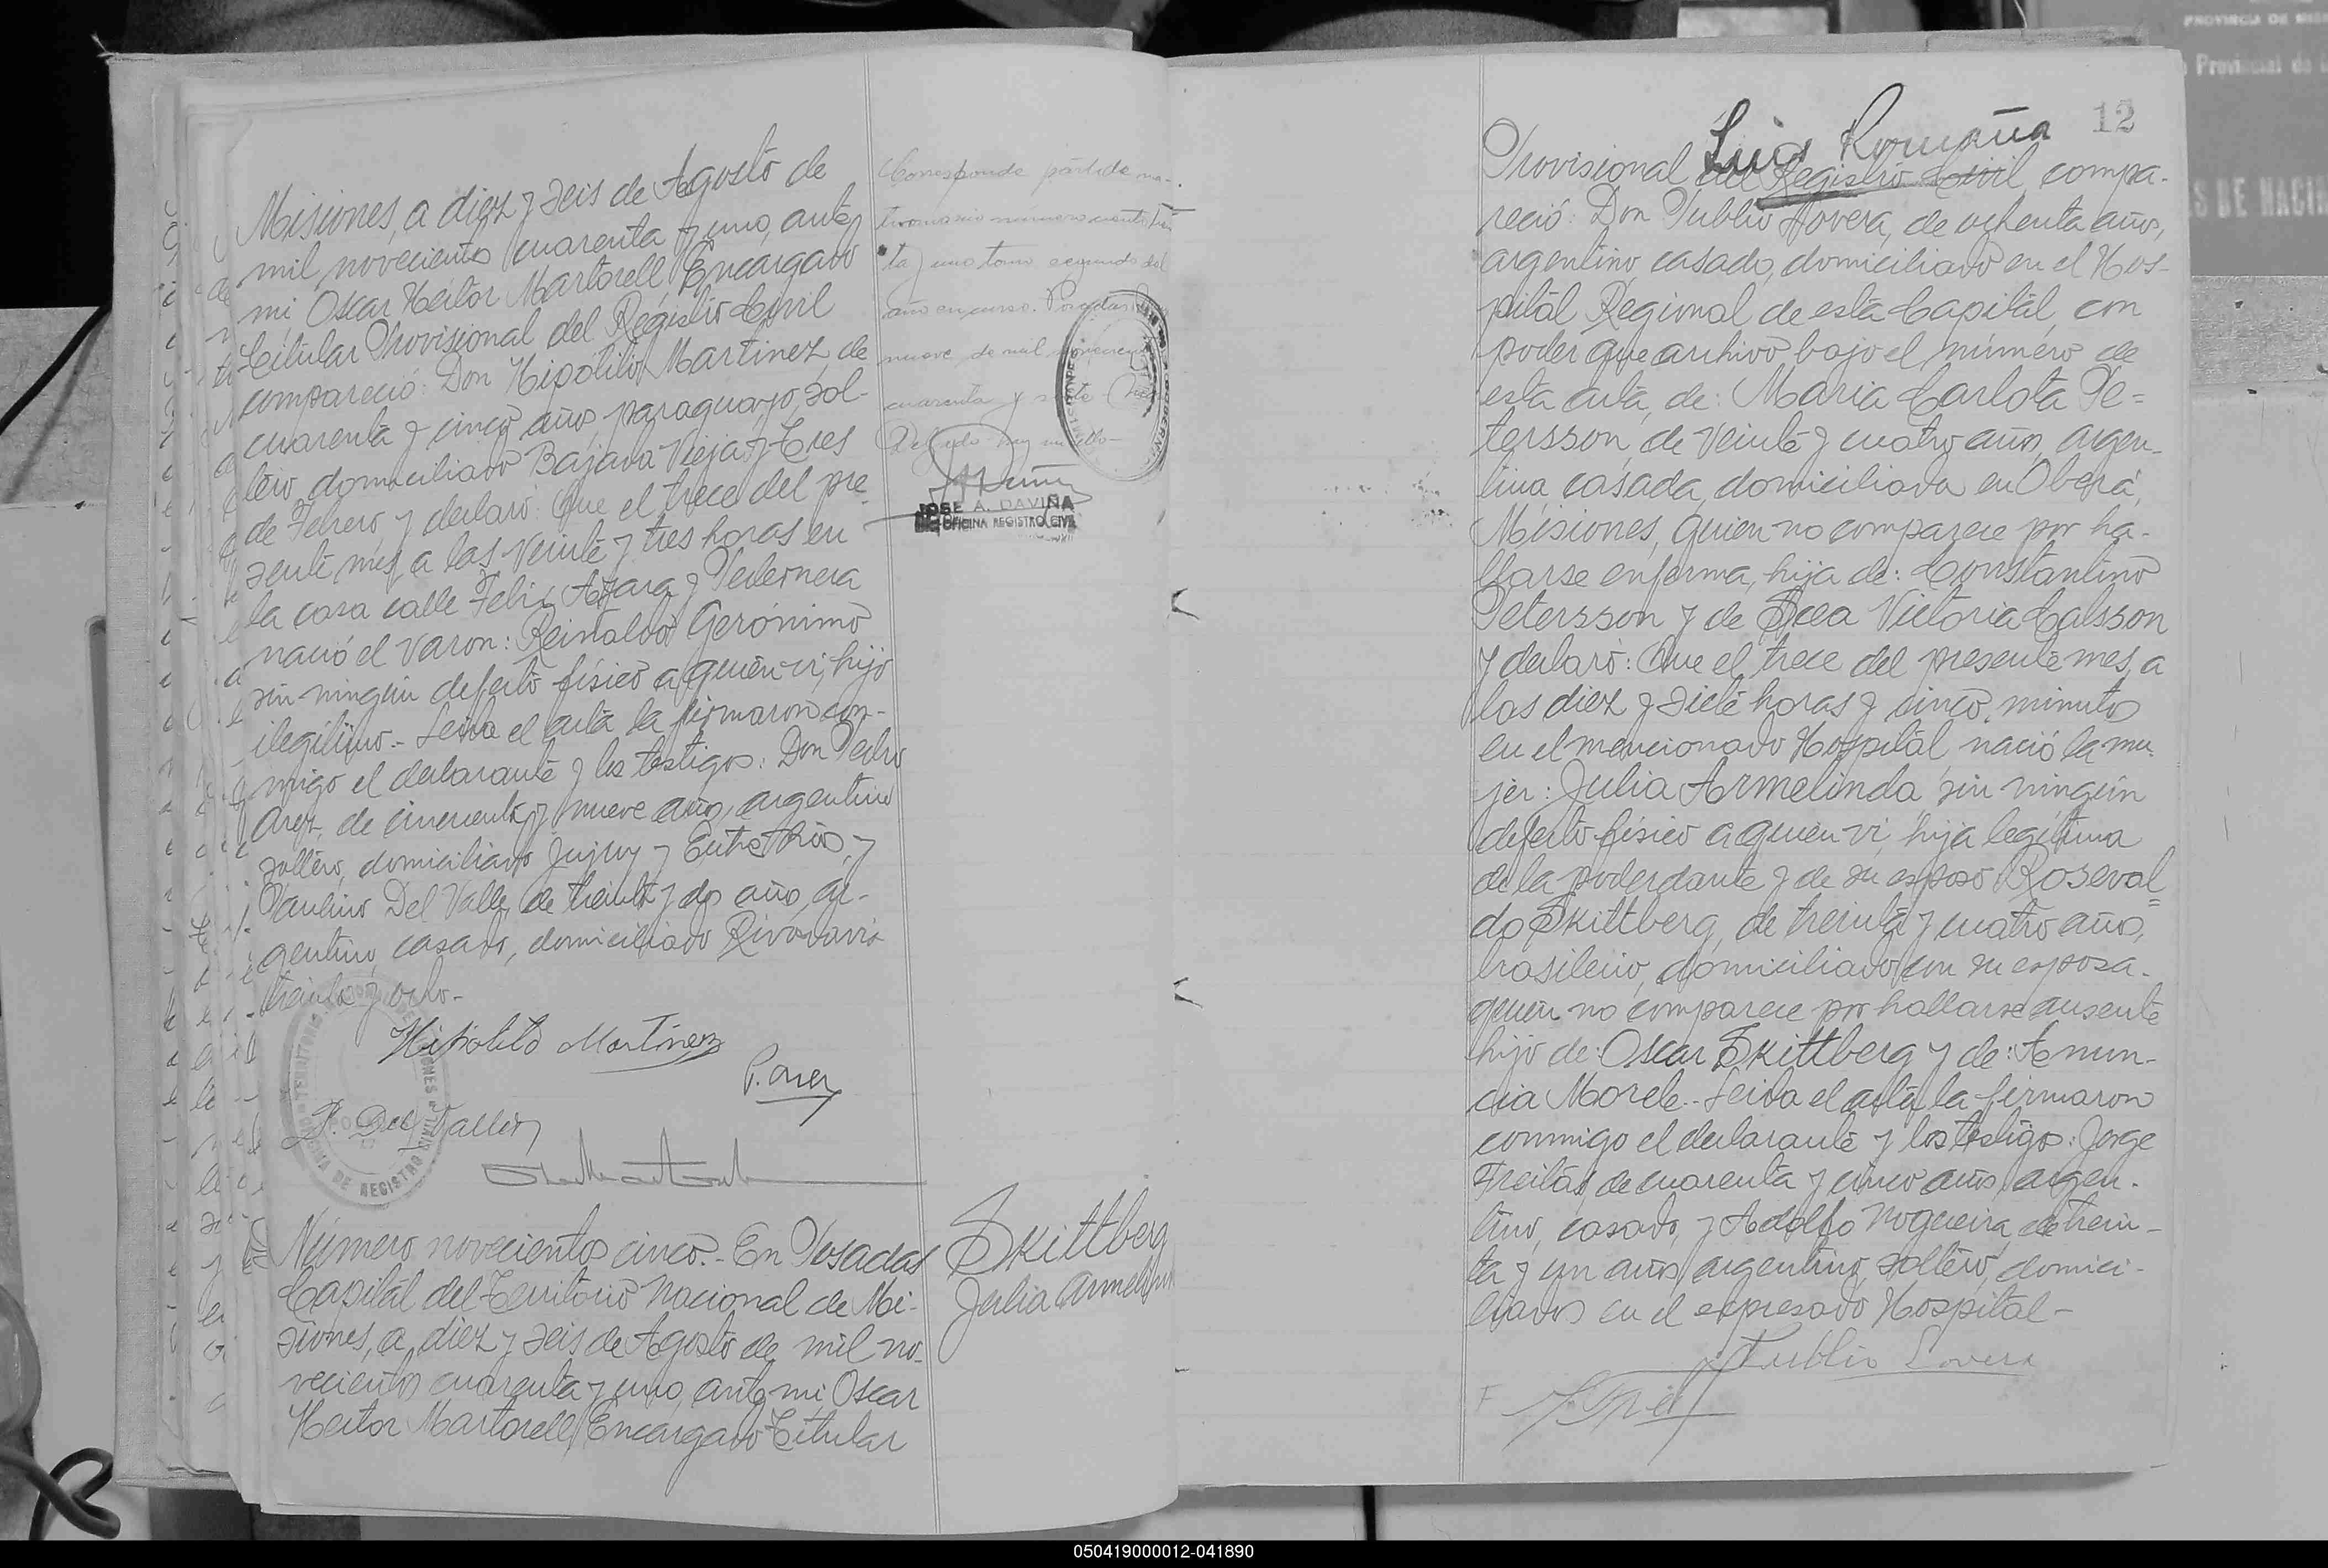 Misiones, a diez y seis de Agosto de
mil novecientos cuarenta y uno, ante
mi, Oscar Héctor Martorell Encargado
Titular Provisional del Registro Civil
compareció: Don Hipólito Martinez, de
cuarenta y cinco años, paraguayo, sol-
tero domiciliado Bajada Vieja y Tres
de Febrero, y declaró: Que el trece del pre-
sente mes, a las veinte y tres horas en
la casa calle Felix Azara y Pedernera
nació el varon: Reinaldo Gerónimo
sin ningún defecto físico a quien vi, hijo
ilegítimo.- Leida el acta la firmaron con-
migo el declarante y los testigos: Don Pedro
de cincuenta y nueve años, argentino
soltero, domiciliado Jujuy y Entre Rios, y
Paulino Del Valle, de treinta y dos años, ar-
gentino, casado, domiciliado Rivadavia
treinta y ocho.-
Hipólito Martínez
P. Del Valle
Número novecientos cinco.- En Posadas
Capital del Territorio Nacional de Mi-
siones, a diez y seis de Agosto de mil no-
vecientos cuarenta y uno, ante mi, Oscar
Héctor Martorell Encargado Titular
Corresponde partida ma-
trimonio número ciento
ta y uno tomo segundo del
año en curso. Posadas
nueve de mil
cuarenta y siete
JOSE A. DAVIÑA
OFICINA REGISTRO CIVIL
Skittberg
Julia
12
Luis Romaña
Provisional del Registro Civil, compa-
reció: Don Publio Lovera, de ochenta años,
argentino casado, domiciliado en el Hos-
pital Regional de esta Capital, con
poder que archivo bajo el número de
esta acta, de: Maria Carlota Pe=
tersson, de veinte y cuatro años, argen-
tina, casada, domiciliada en Oberá,
Misiones, quien no comparece por ha-
llarse enferma, hija de: Constantino
Petersson y de Victoria Calsson
y declaró: Que el trece del presente mes, a
las diez y siete horas y cinco minutos
en el mencionado Hospital, nació la mu-
jer: Julia Armelinda sin ningún
defecto físico a quien vi, hija legítima
de la poderdante y de su esposo Roseval=
do Skittberg, de treinta y cuatro años,
brasilero, domiciliado con su esposa.
quien no comparece por hallarse ausente
hijo de: Oscar Skittberg y de: Anun-
cia Morele.- Leida el acta la firmaron
conmigo el declarante y los testigos: Jorge
Freitas de cuarenta y cinco años, argen-
tino, casado, y Adolfo Nogueira, de trein-
ta y un años, argentino, soltero, domici-
liados en el expresado Hospital-
Publio Lovera
PROVINCIA DE
Provincial de
ES DE NACIM
050419000012-041890